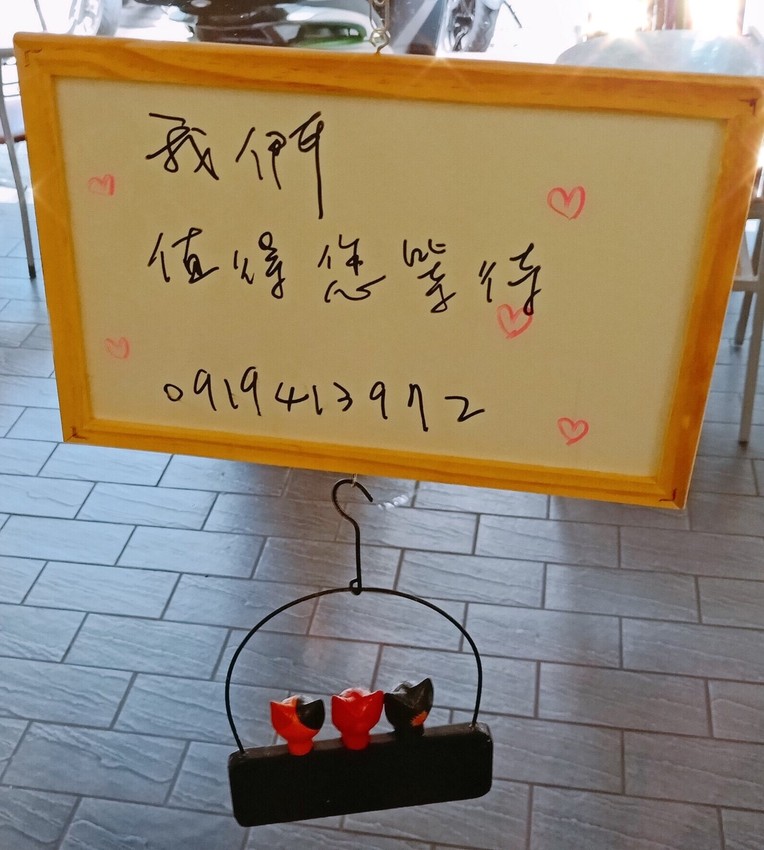 我們
值得您等待
0919413972